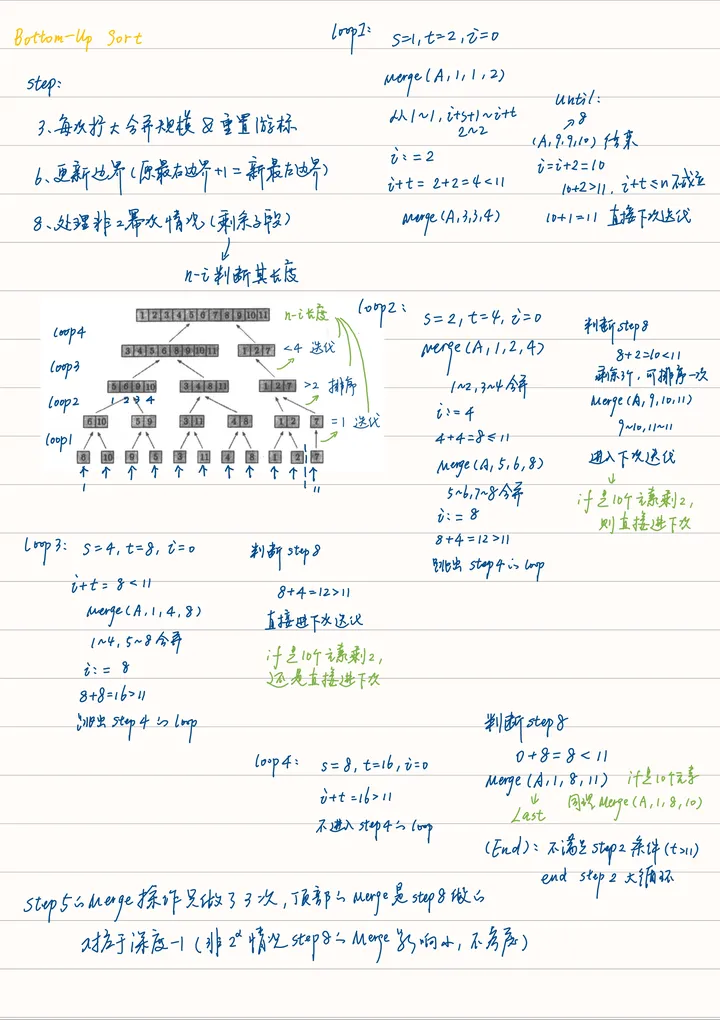 Bottom-Up Sort
step:
3、每次扩大合并规模 & 重置游标
6、更新边界(原最右边界+1=新最左边界)
8、处理非2幂次情况(剩余子段)
n-i判断其长度
loop1:
s=1, t=2, i=0
merge(A,1,1,2)
从1~1, i+s+1~i+t
2~2
i:=2
i+t= 2+2=4<11
merge(A,3,3,4)
until:
8
(A,9,9,10) 结束
i=i+2=10
10+2>11, i+t≤n不成立
10+1=11 直接下次迭代
1 2 3 4 5 6 7 8 9 10 11
n-i长度
loop4
3 4 5 6 8 9 10 11
1 2 7
<4 迭代
loop3
5 6 9 10
3 4 8 11
1 2 7
>2 排序
loop2
1 2 3 4
6 10
5 9
3 11
4 8
1 2
7
=1 迭代
loop1
6 10 9 5 3 11 4 8 1 2 7
1
11
loop2:
s=2, t=4, i=0
merge(A,1,2,4)
1~2,3~4合并
i:=4
4+4=8≤11
Merge(A,5,6,8)
5~6,7~8合并
i:=8
8+4=12>11
跳出step4的loop
判断step8
8+2=10<11
剩余3个,可排序一次
Merge(A,9,10,11)
9~10,11~11
进入下次迭代
if是10个元素剩2,
则直接进下次
Loop3: s=4, t=8, i=0
i+t= 8<11
Merge(A,1,4,8)
1~4,5~8合并
i:= 8
8+8=16>11
跳出step4的loop
判断step8
8+4=12>11
直接进下次迭代
if是10个元素剩2,
还是直接进下次
loop4: s=8, t=16, i=0
i+t=16>11
不进入step4的loop
判断step8
0+8=8<11
Merge(A,1,8,11) if是10个元素
Last 同理Merge(A,1,8,10)
(End): 不满足step2条件(t>11)
end step2大循环
step5的Merge操作只做了3次,顶部的merge是step8做的
对应于深度-1(非2^α情况step8的Merge影响小,不考虑)